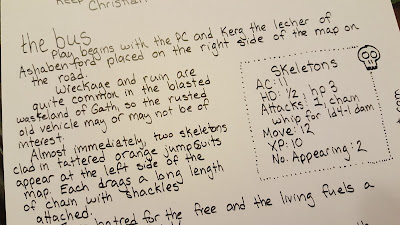 Christian
the bus
Play begins with the PC and Kera the lecher of
Ashabenford placed on the right side of the map on
the road.
Wreckage and ruin are
quite common in the blasted
wasteland of Gath, so the rusted
old vehicle may or may not be of
interest.
Almost immediately, two skeletons
clad in tattered orange jumpsuits
appear at the left side of the
map. Each drags a long length
of chain with shackles
attached.
hatred for the free and the living fuels a
Skeletons
AC: 11
HD: 1/2, hp 3
Attacks: 1, chain
whip for 1d4-1 dam
Move: 12
XP: 10
No. Appearing: 2